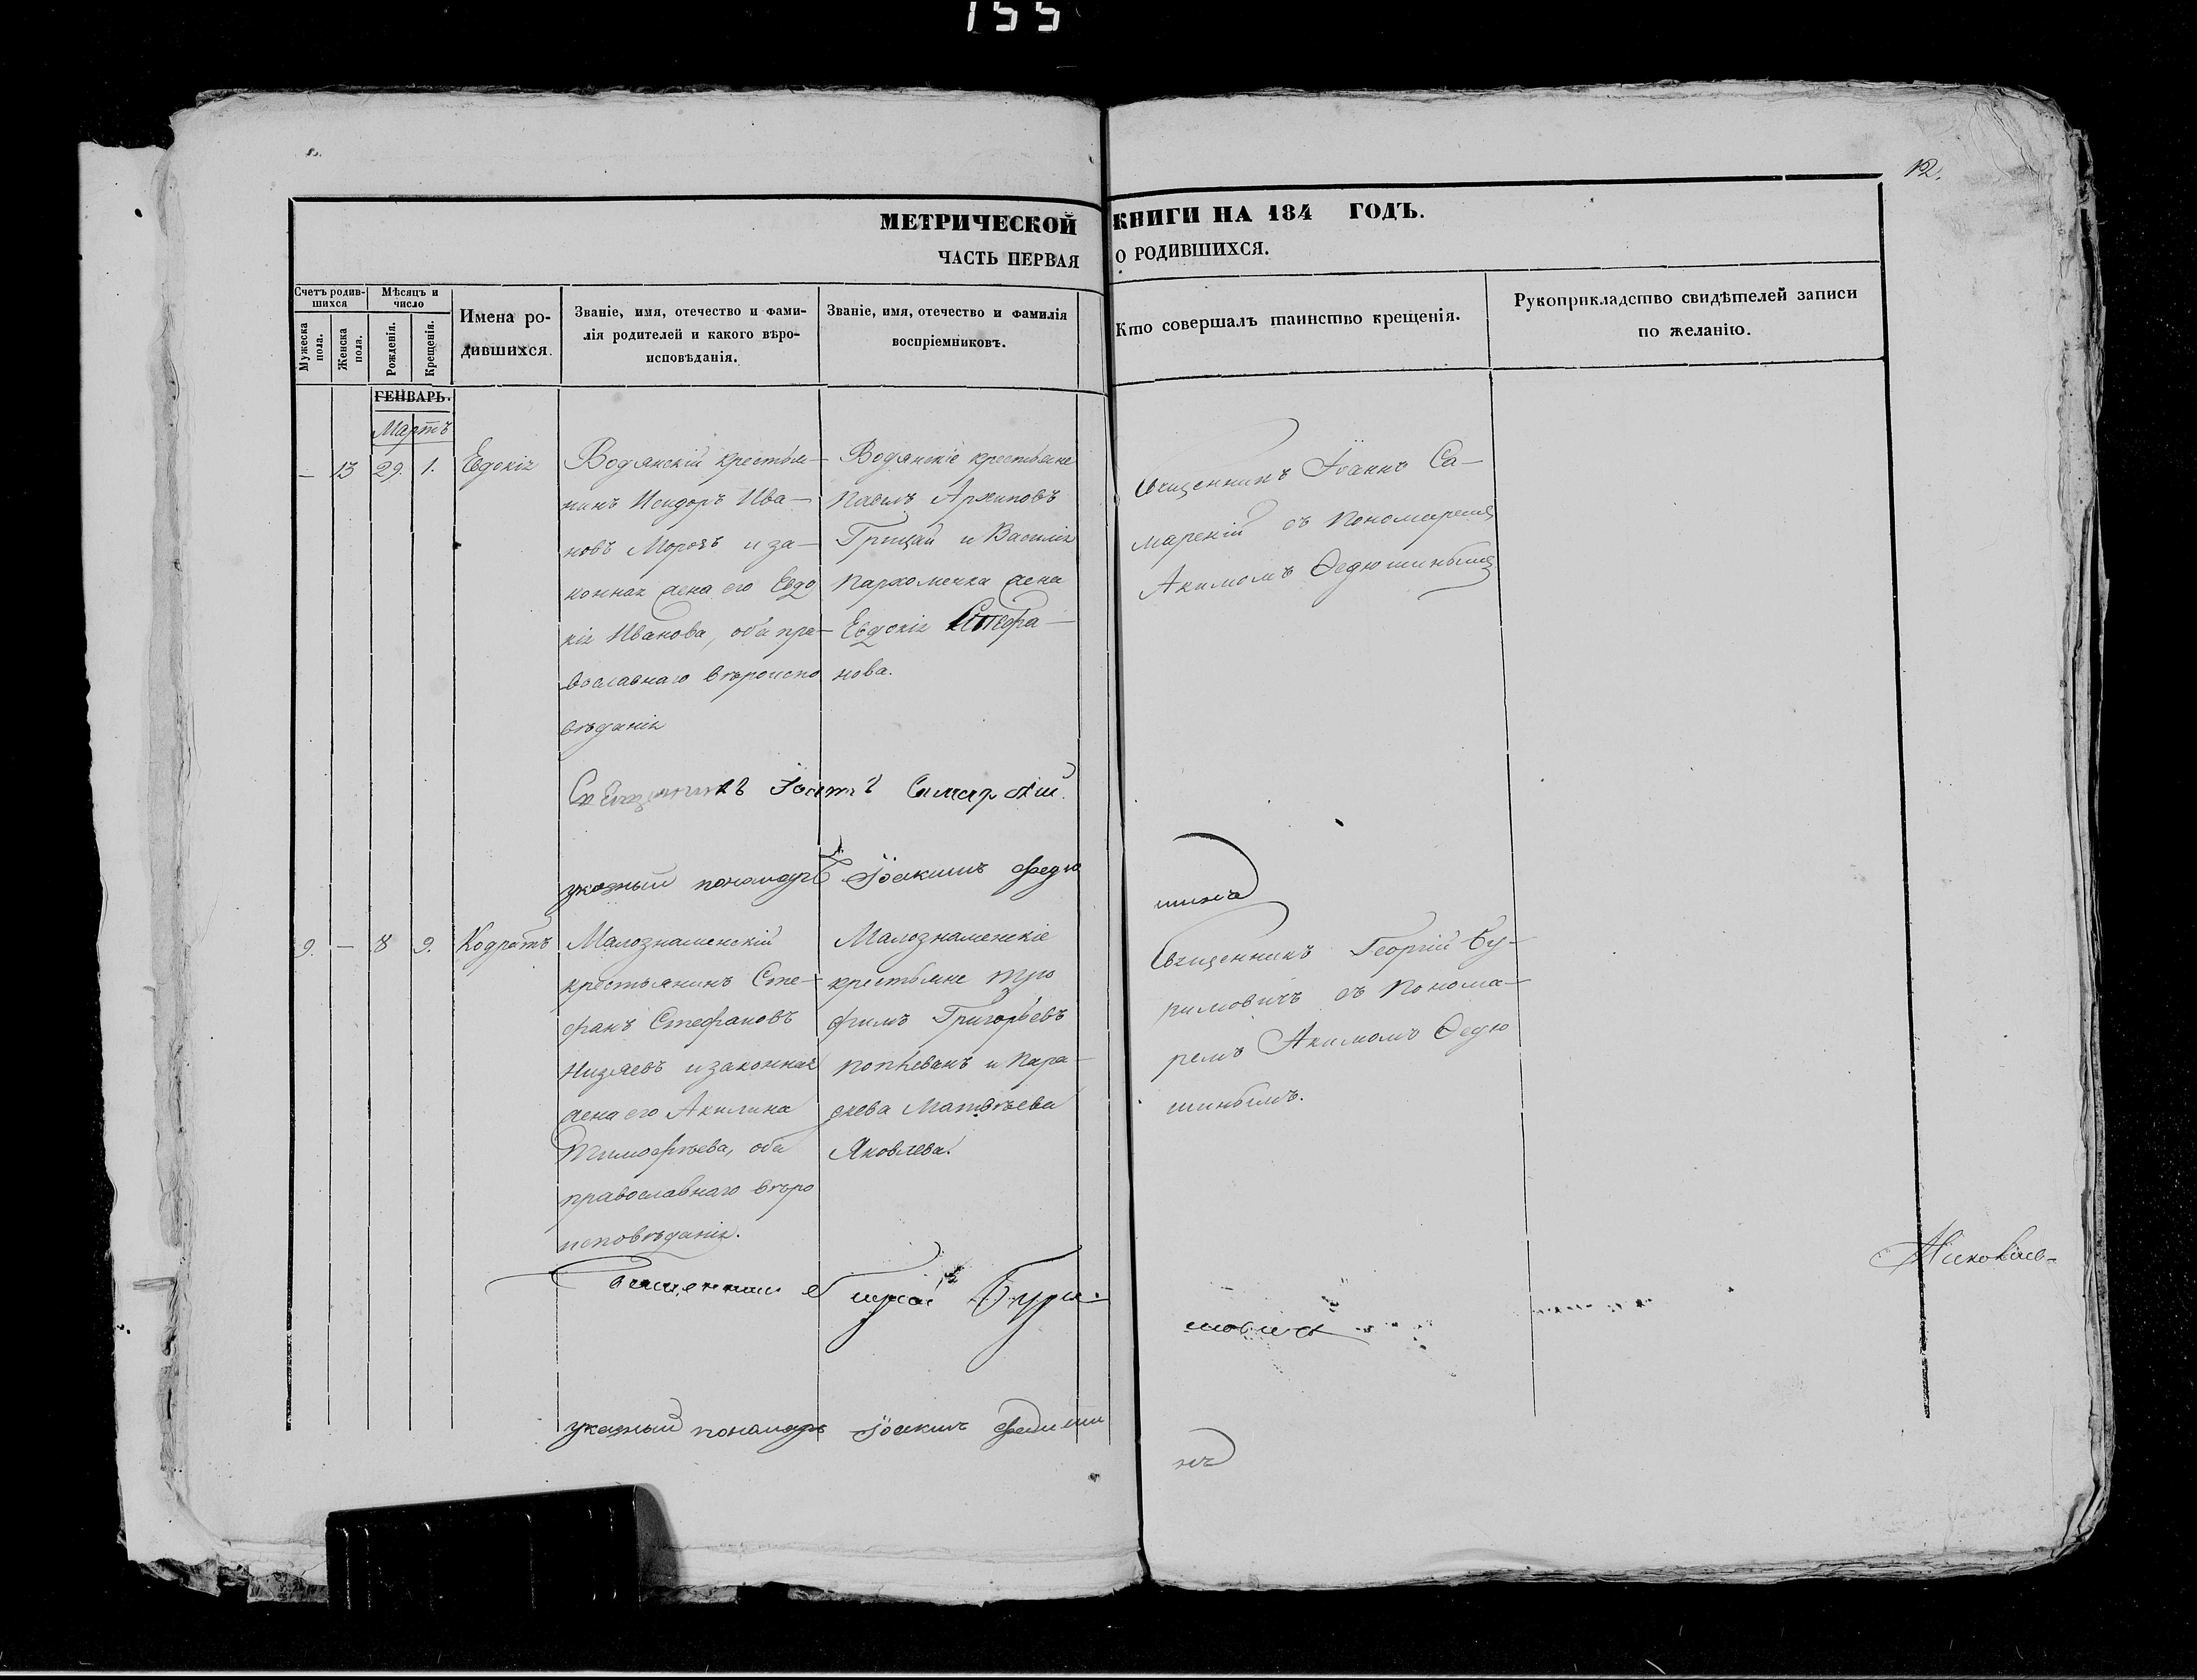 155
12.
МЕТРИЧЕСКОЙ КНИГИ НА 184 ГОДЪ.
ЧАСТЬ ПЕРВАЯ О РОДИВШИХСЯ.
Счетъ родив-
шихся
Мужеска пола.
Женска пола.
Мѣсяцъ и
число
Рожденія.
Крещенія.
Имена ро-
дившихся.
Званіе, имя, отечество и фами-
лія родителей и какого вѣро-
исповѣданія.
Званіе, имя, отечество и фамилія
воспріемниковъ.
Кто совершалъ таинство крещенія.
Рукоприкладство свидѣтелей записи
по желанію.
ГЕНВАРЬ.
Мартъ
— 13 29. 1. Евдокія
Водянскій крестья-
нинъ Исидоръ Ива-
новъ Морозъ и за-
конная жена его Евдо
кія Иванова, оба пра-
вославнаго вѣроиспо
вѣданія
Водянскіе крестьяне
Павелъ Архиповъ
Грицай и Василія
Пархоменка жена
Евдокія Стефа-
нова.
Священникъ Іоаннъ Са-
марскій съ Пономаремъ
Акимомъ Ѳедюшинымъ
Священникъ Іоаннъ Самарскій.
указный пономарь Іоакимъ Федю
шинъ
9. — 8 9. Кодратъ
Малознаменскій
крестьянинъ Сте-
фанъ Стефановъ
Низяевъ и законная
жена его Акилина
Тимофѣева, оба
православнаго вѣро
исповѣданія.
Малознаменскіе
крестьяне Тро
фимъ Григорьевъ
и Пара-
скева Матвѣева
Яковлева.
Священникъ Георгій Бу-
римовичъ съ Понома-
ремъ Акимомъ Ѳедю
шинымъ.
Священникъ Георгій Бури-
мовичъ
указный пономарь Іоакимъ Федюши
нъ